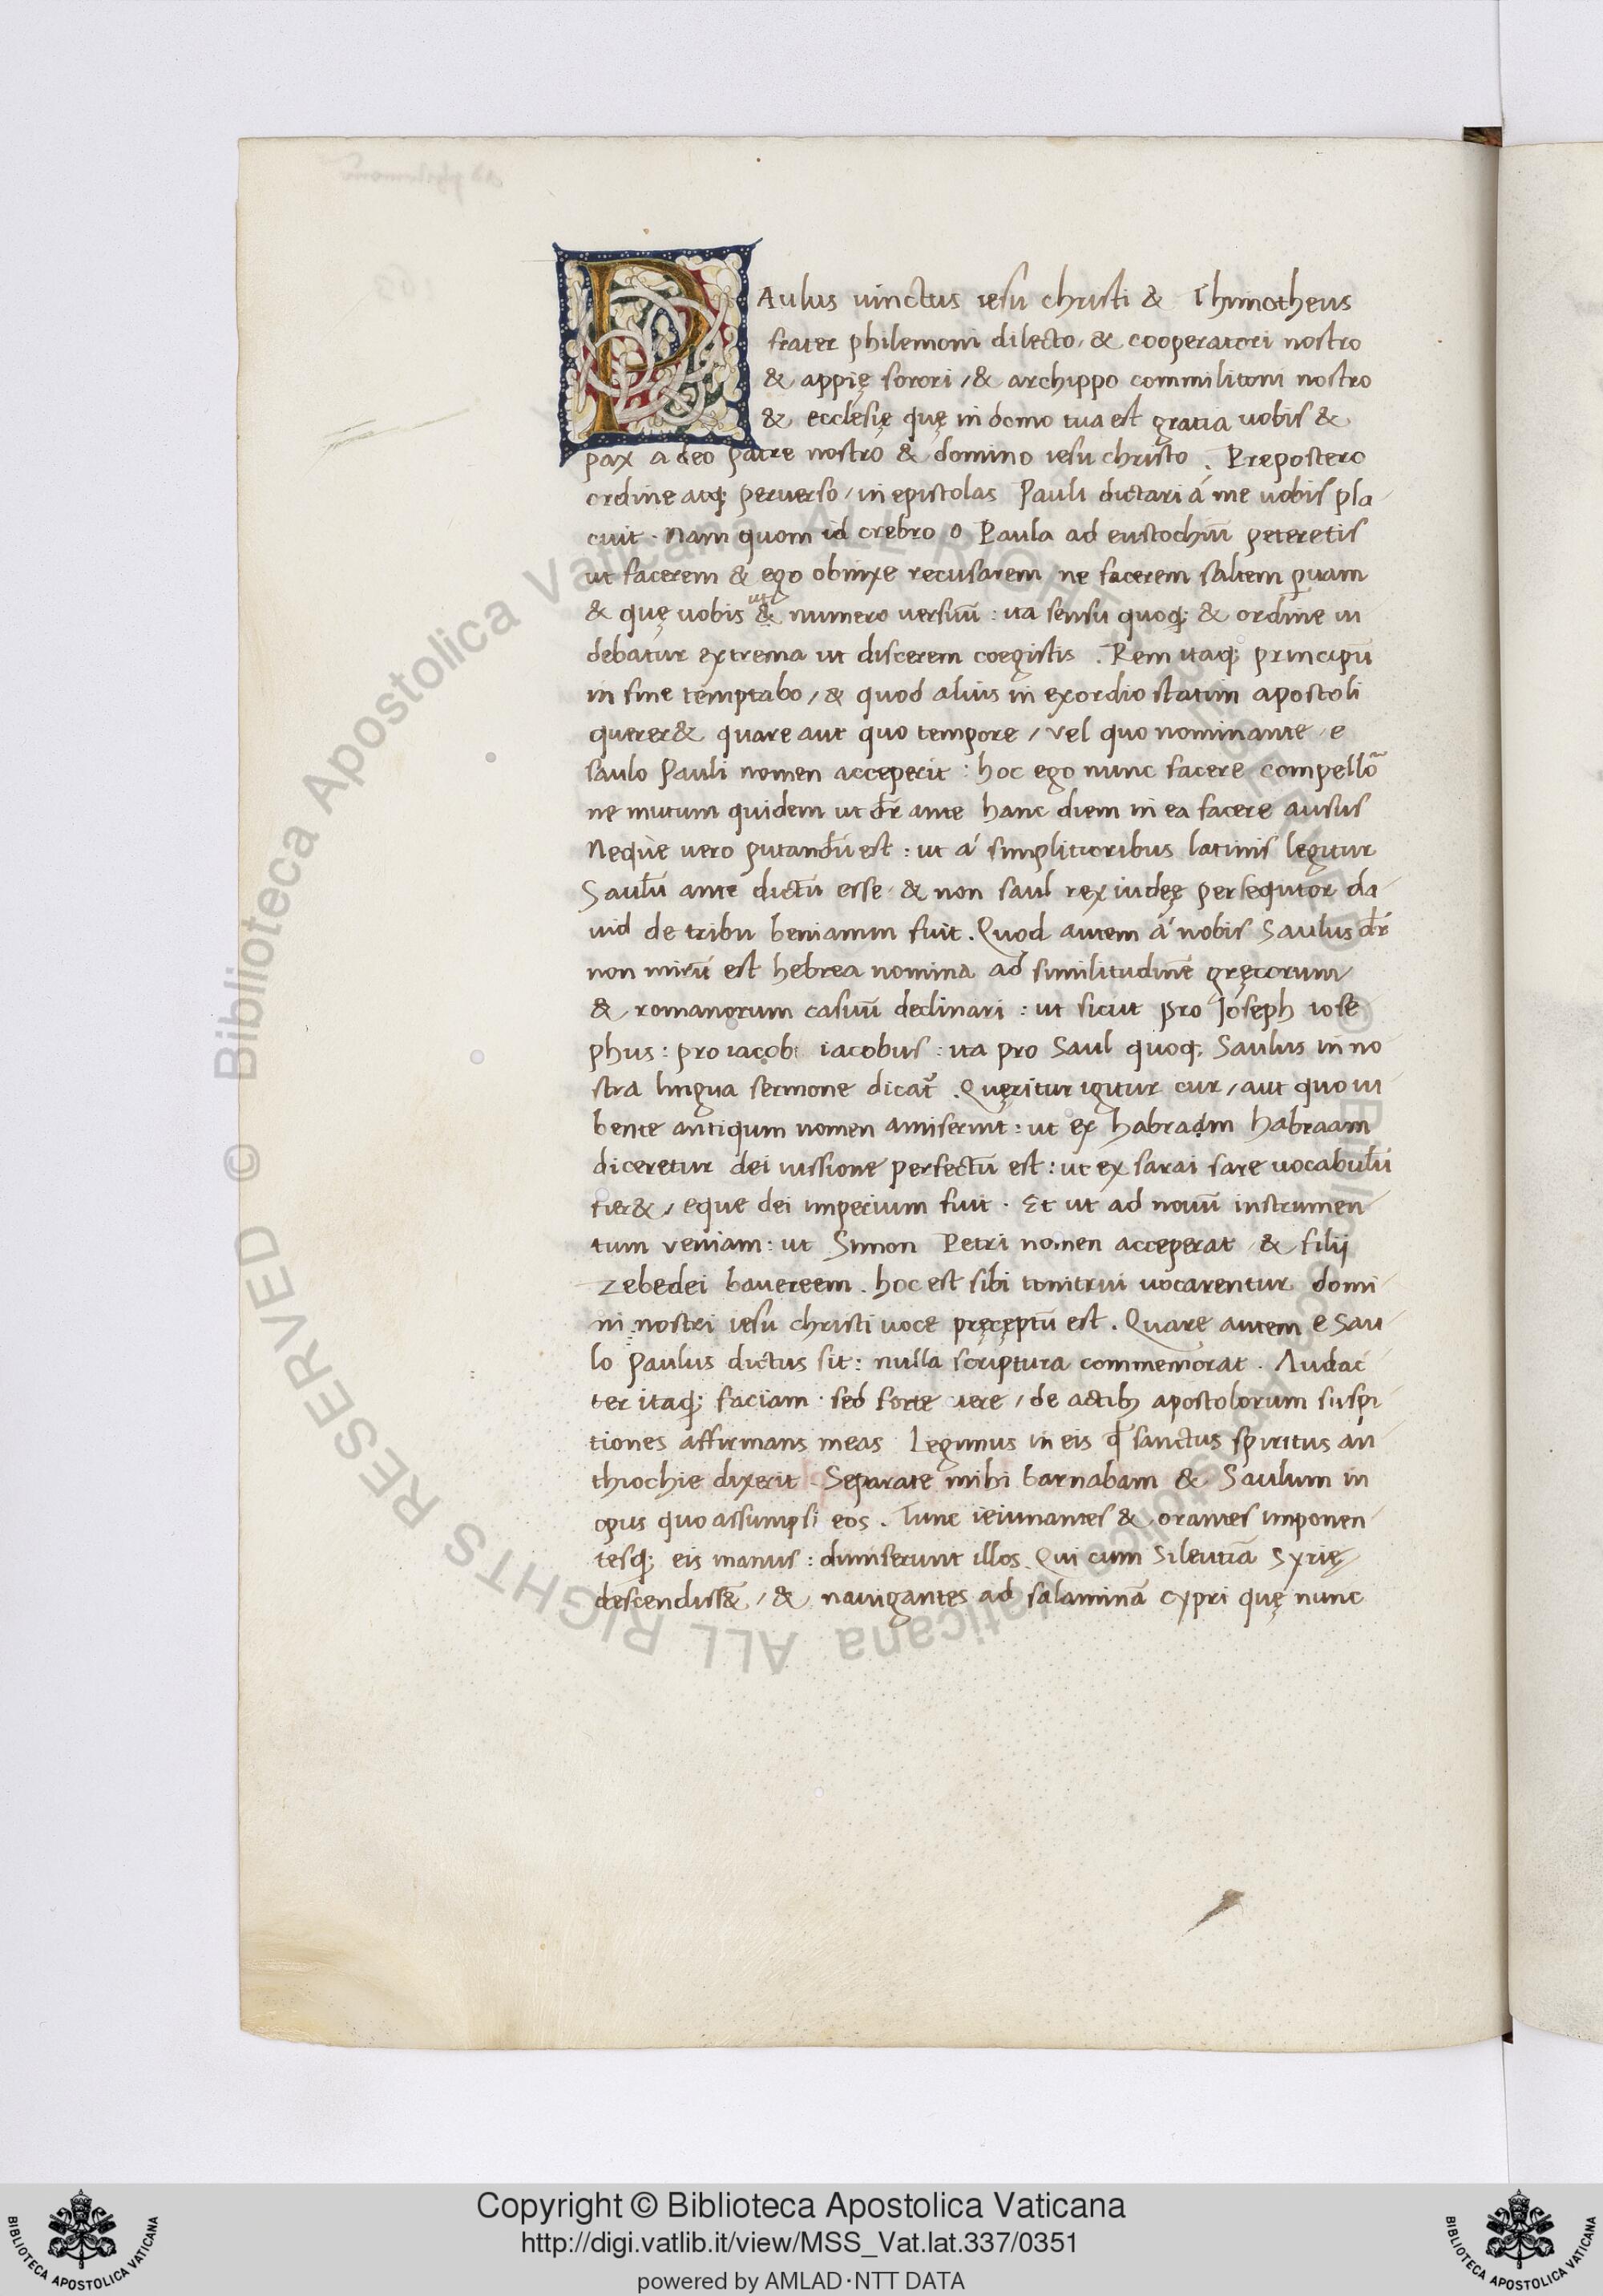 PAulus uinctus iesu christi & Thimotheus
frater philemoni dilecto, & cooperatori nostro
& appię sorori, / & archippo commilitoni nostro
& ecclesię quę in domo tua est gratia uobis &
pax a deo patre nostro & domino iesu christo . Prepostero
ordine atq; peruerso / in epistolas Pauli dictari á me uobis pla-
cuit . Nam quom id crebro o Paula ad eustochiū peteretis
ut facerem & ego obnixe recusarem ne facerem saltem ꝑuam
& quę uobis & numero versuū : ita sensu quoq; & ordine ui
debatur extrema ut discerem coegistis . Rem itaq; principū
in fine temptabo / & quod alius in exordio statim apostoli
querer& quare aut quo tempore / vel quo nominante e
saulo Pauli nomen acceperit : hoc ego nunc facere compello᷑
ne mutum quidem ut dr̄ ante hanc diem in ea facere ausus
Neque vero putandū est : ut á simplitioribus latinis legitur
Saulū ante dictū esse & non saul rex iudeę persequtor da-
uid de tribu beniamin fuit . Quod autem á nobis Saulus dr̄
non mirū est hebrea nomina ad similitudinē gręcorum
& romanorum casuū declinari : ut sicut pro Joseph iose
phus : pro iacob iacobus : ita pro Saul quoq; Saulus in no
stra lingua sermone dicat᷑ . Quęritur igitur cur / aut quo iu
bente antiqum nomen amiserint : ut ex habraam habraam
diceretur dei iussione perfectū est : ut ex sarai sare uocabulū
fier& / eque dei imperium fuit . Et ut ad nouū instrumen
tum veniam : ut Simon Petri nomen acceperat & filij
zebedei bauereem . hoc est sibi tonitrui uocarentur domi-
ni nostri iesu christi uoce pręceptū est . Quare autem e Sau
lo Paulus dictus sit : nulla scriptura commemorat . Audac
ter itaq; faciam . sed forte vere / de actibꝫ apostolorum suspi
tiones affirmans meas Legimus in eis ꝙ sanctus spiritus an
thiochie dixerit . Separate mihi barnabam & Saulum in
opus quo assumpsi eos . Tunc ieiunantes & orantes imponen
tesq; eis manus : dimiserunt illos Qui cum Sileutiā Syrię
descendiss& / & nauigantes ad salaminā cypri quę nunc
© Biblioteca Apostolica Vaticana ALL RIGHTS RESERVED
Copyright © Biblioteca Apostolica Vaticana
http://digi.vatlib.it/view/MSS_Vat.lat.337/0351
powered by AMLAD·NTT DATA
BIBLIOTECA APOSTOLICA VATICANA
BIBLIOTECA APOSTOLICA VATICANA